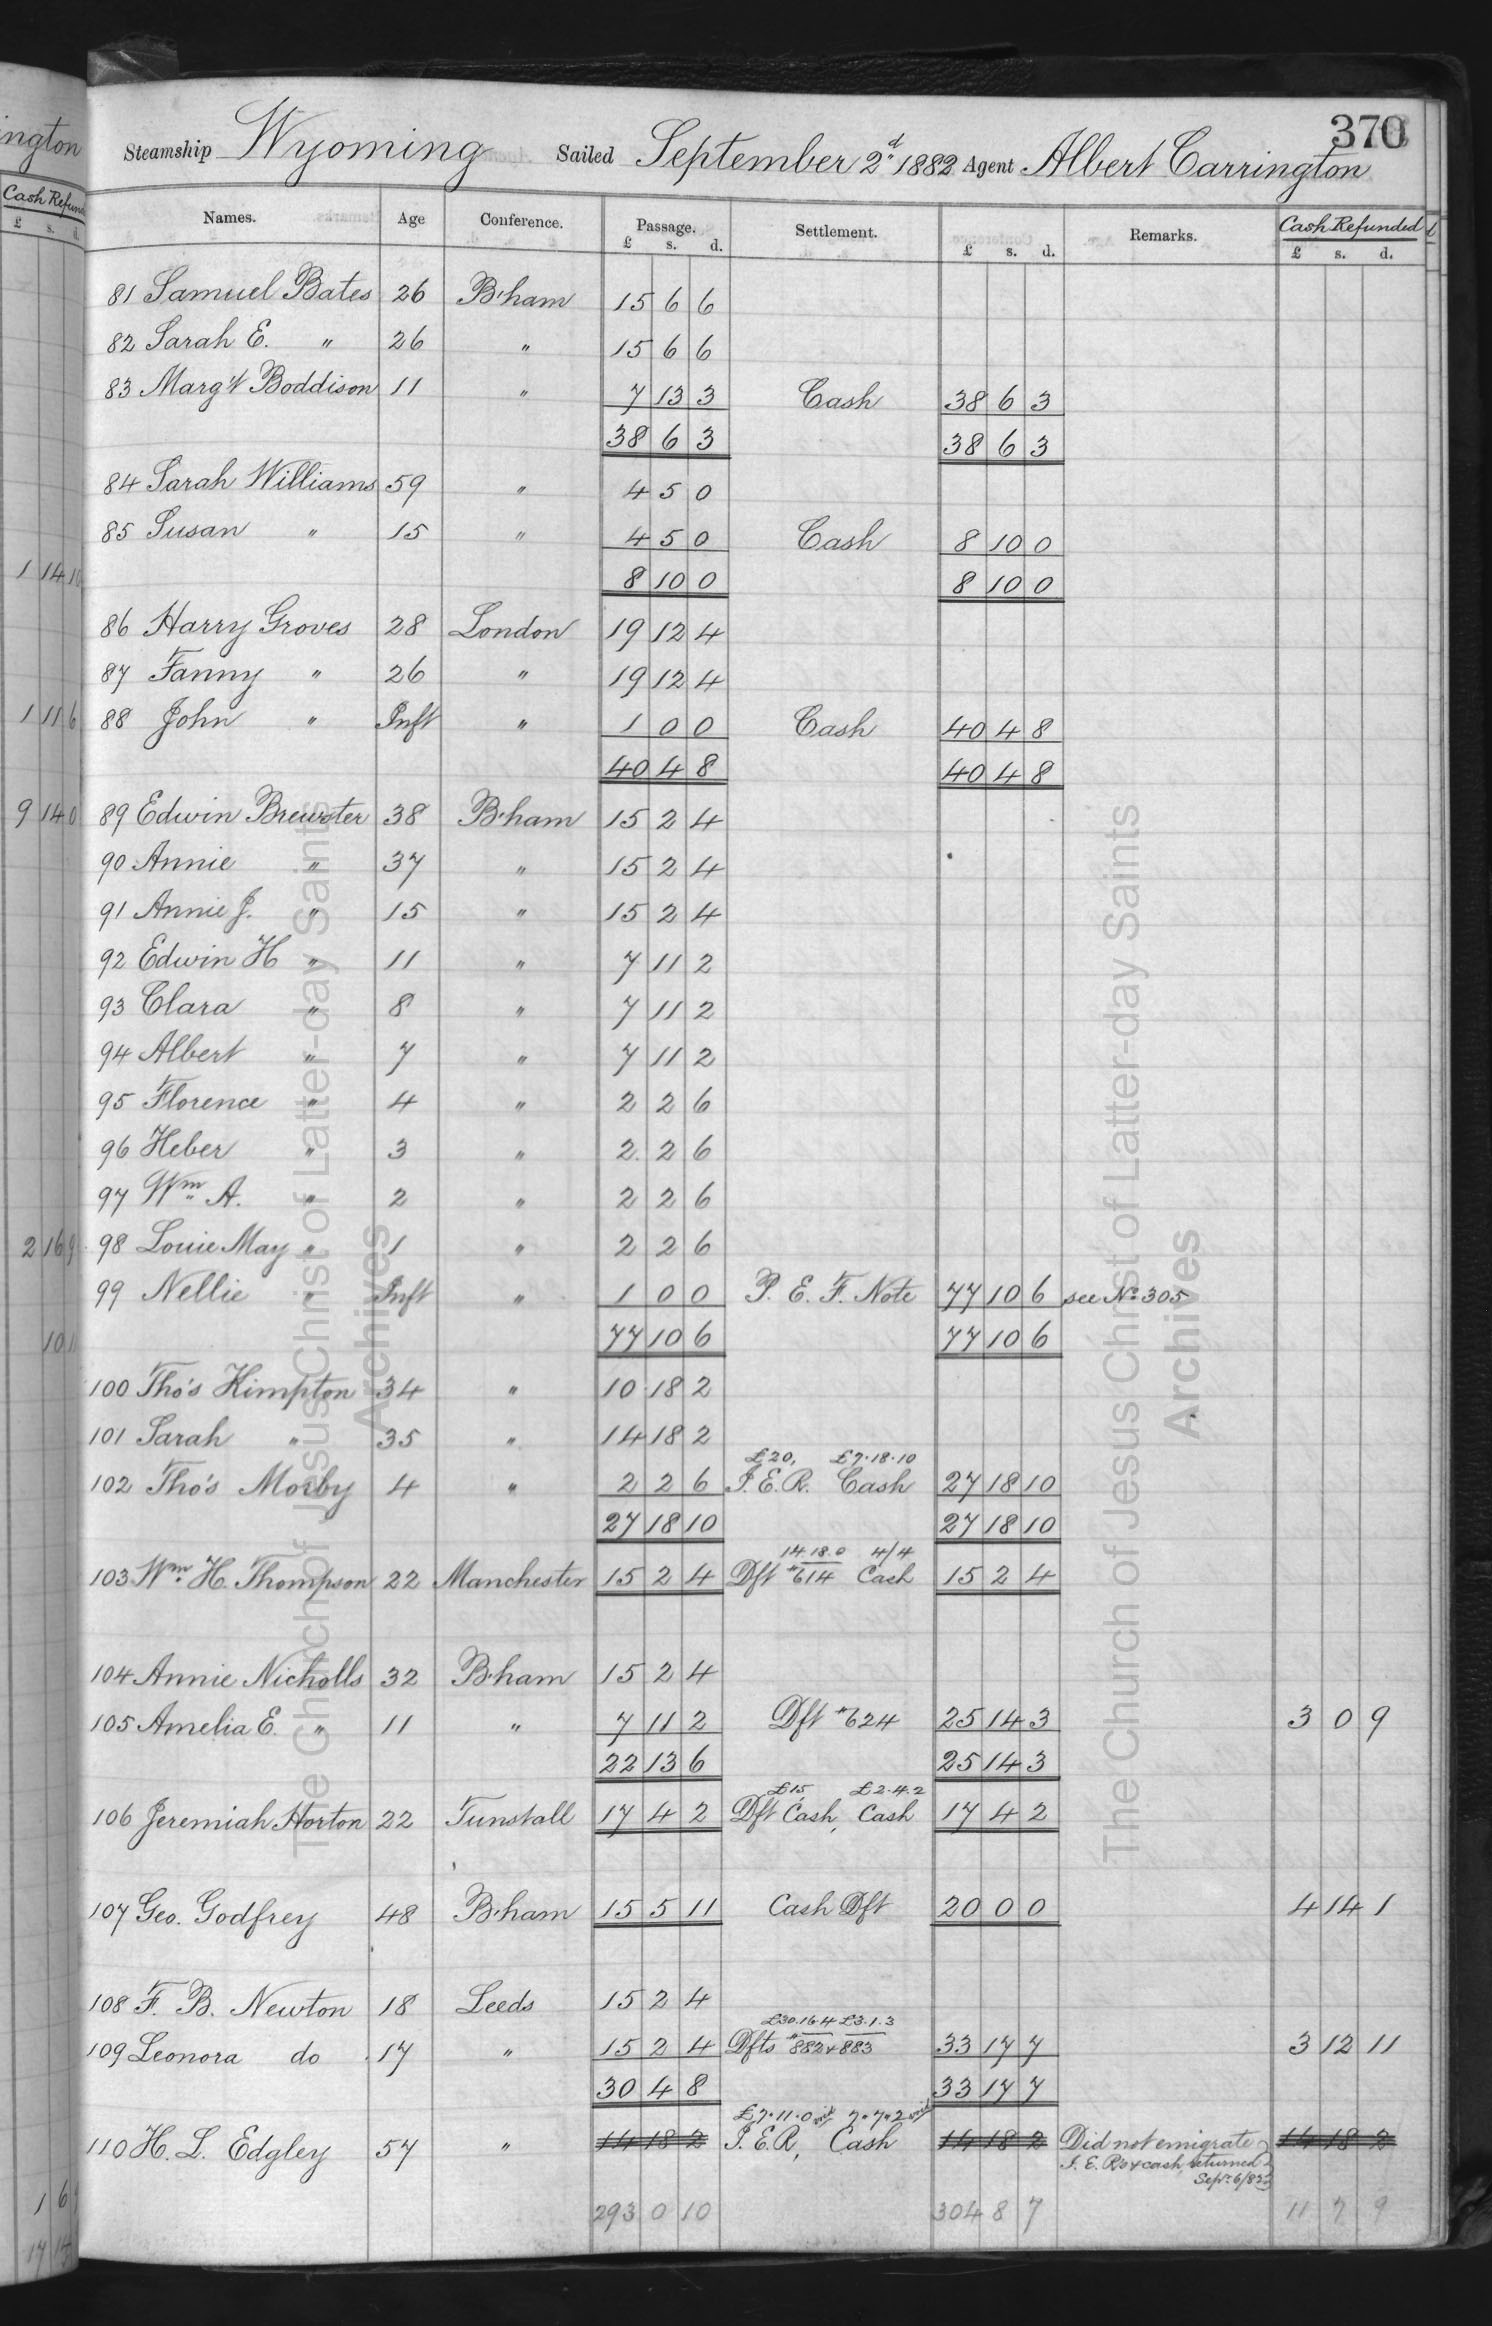 370
Steamship Wyoming Sailed September 2d 1882 Agent Albert Carrington
Names. Age Conference. Passage. Settlement. Remarks. Cash Refunded
£ s. d. £ s. d. £ s. d.
81 Samuel Bates 26 B'ham 15 6 6
82 Sarah E. " 26 " 15 6 6
83 Marg't Boddison 11 " 7 13 3 Cash 38 6 3
38 6 3 38 6 3
84 Sarah Williams 59 " 4 5 0
85 Susan " 15 " 4 5 0 Cash 8 10 0
8 10 0 8 10 0
86 Harry Groves 28 London 19 12 4
87 Fanny " 26 " 19 12 4
88 John " Inft " 1 0 0 Cash 40 4 8
40 4 8 40 4 8
89 Edwin Brewster 38 B'ham 15 2 4
90 Annie " 37 " 15 2 4
91 Annie J. " 15 " 15 2 4
92 Edwin H " 11 " 7 11 2
93 Clara " 8 " 7 11 2
94 Albert " 7 " 7 11 2
95 Florence " 4 " 2 2 6
96 Heber " 3 " 2 2 6
97 Wm A. " 2 " 2 2 6
98 Louie May " 1 " 2 2 6
99 Nellie " Inft " 1 0 0 P. E. F. Note 77 10 6 see No. 305
77 10 6 77 10 6
100 Tho's Kimpton 34 " 10 18 2
101 Sarah " 35 " 14 18 2
£20, £7.18.10
102 Tho's Morby 4 " 2 2 6 I. E. R. Cash 27 18 10
27 18 10 27 18 10
14.18.0 4/4
103 Wm. H. Thompson 22 Manchester 15 2 4 Dft #614 Cash 15 2 4
104 Annie Nicholls 32 B'ham 15 2 4
105 Amelia E. " 11 " 7 11 2 Dft #624 25 14 3 3 0 9
22 13 6 25 14 3
£15, £2.4.2
106 Jeremiah Horton 22 Tunstall 17 4 2 Dft Cash, Cash 17 4 2
107 Geo. Godfrey 48 B'ham 15 5 11 Cash Dft 20 0 0 4 14 1
108 F. B. Newton 18 Leeds 15 2 4
£30.16.4 £3.1.3
109 Leonora do 17 " 15 2 4 Dfts #882 + 883 33 17 7 3 12 11
30 4 8 33 17 7
£7.11.0 7.7.2
110 H. L. Edgley 57 " 14 18 2 I. E. R, Cash 14 18 2 Did not emigrate 14 18 2
I. E. R's + cash, returned
Sep. 6/82
293 0 10 304 8 7 11 7 9
ington
Cash Refund
£ s. d.
1 14 10
1 11 6
9 14 0
2 16 9
10
1 6
17
The Church of Jesus Christ of Latter-day Saints
Archives
The Church of Jesus Christ of Latter-day Saints
Archives